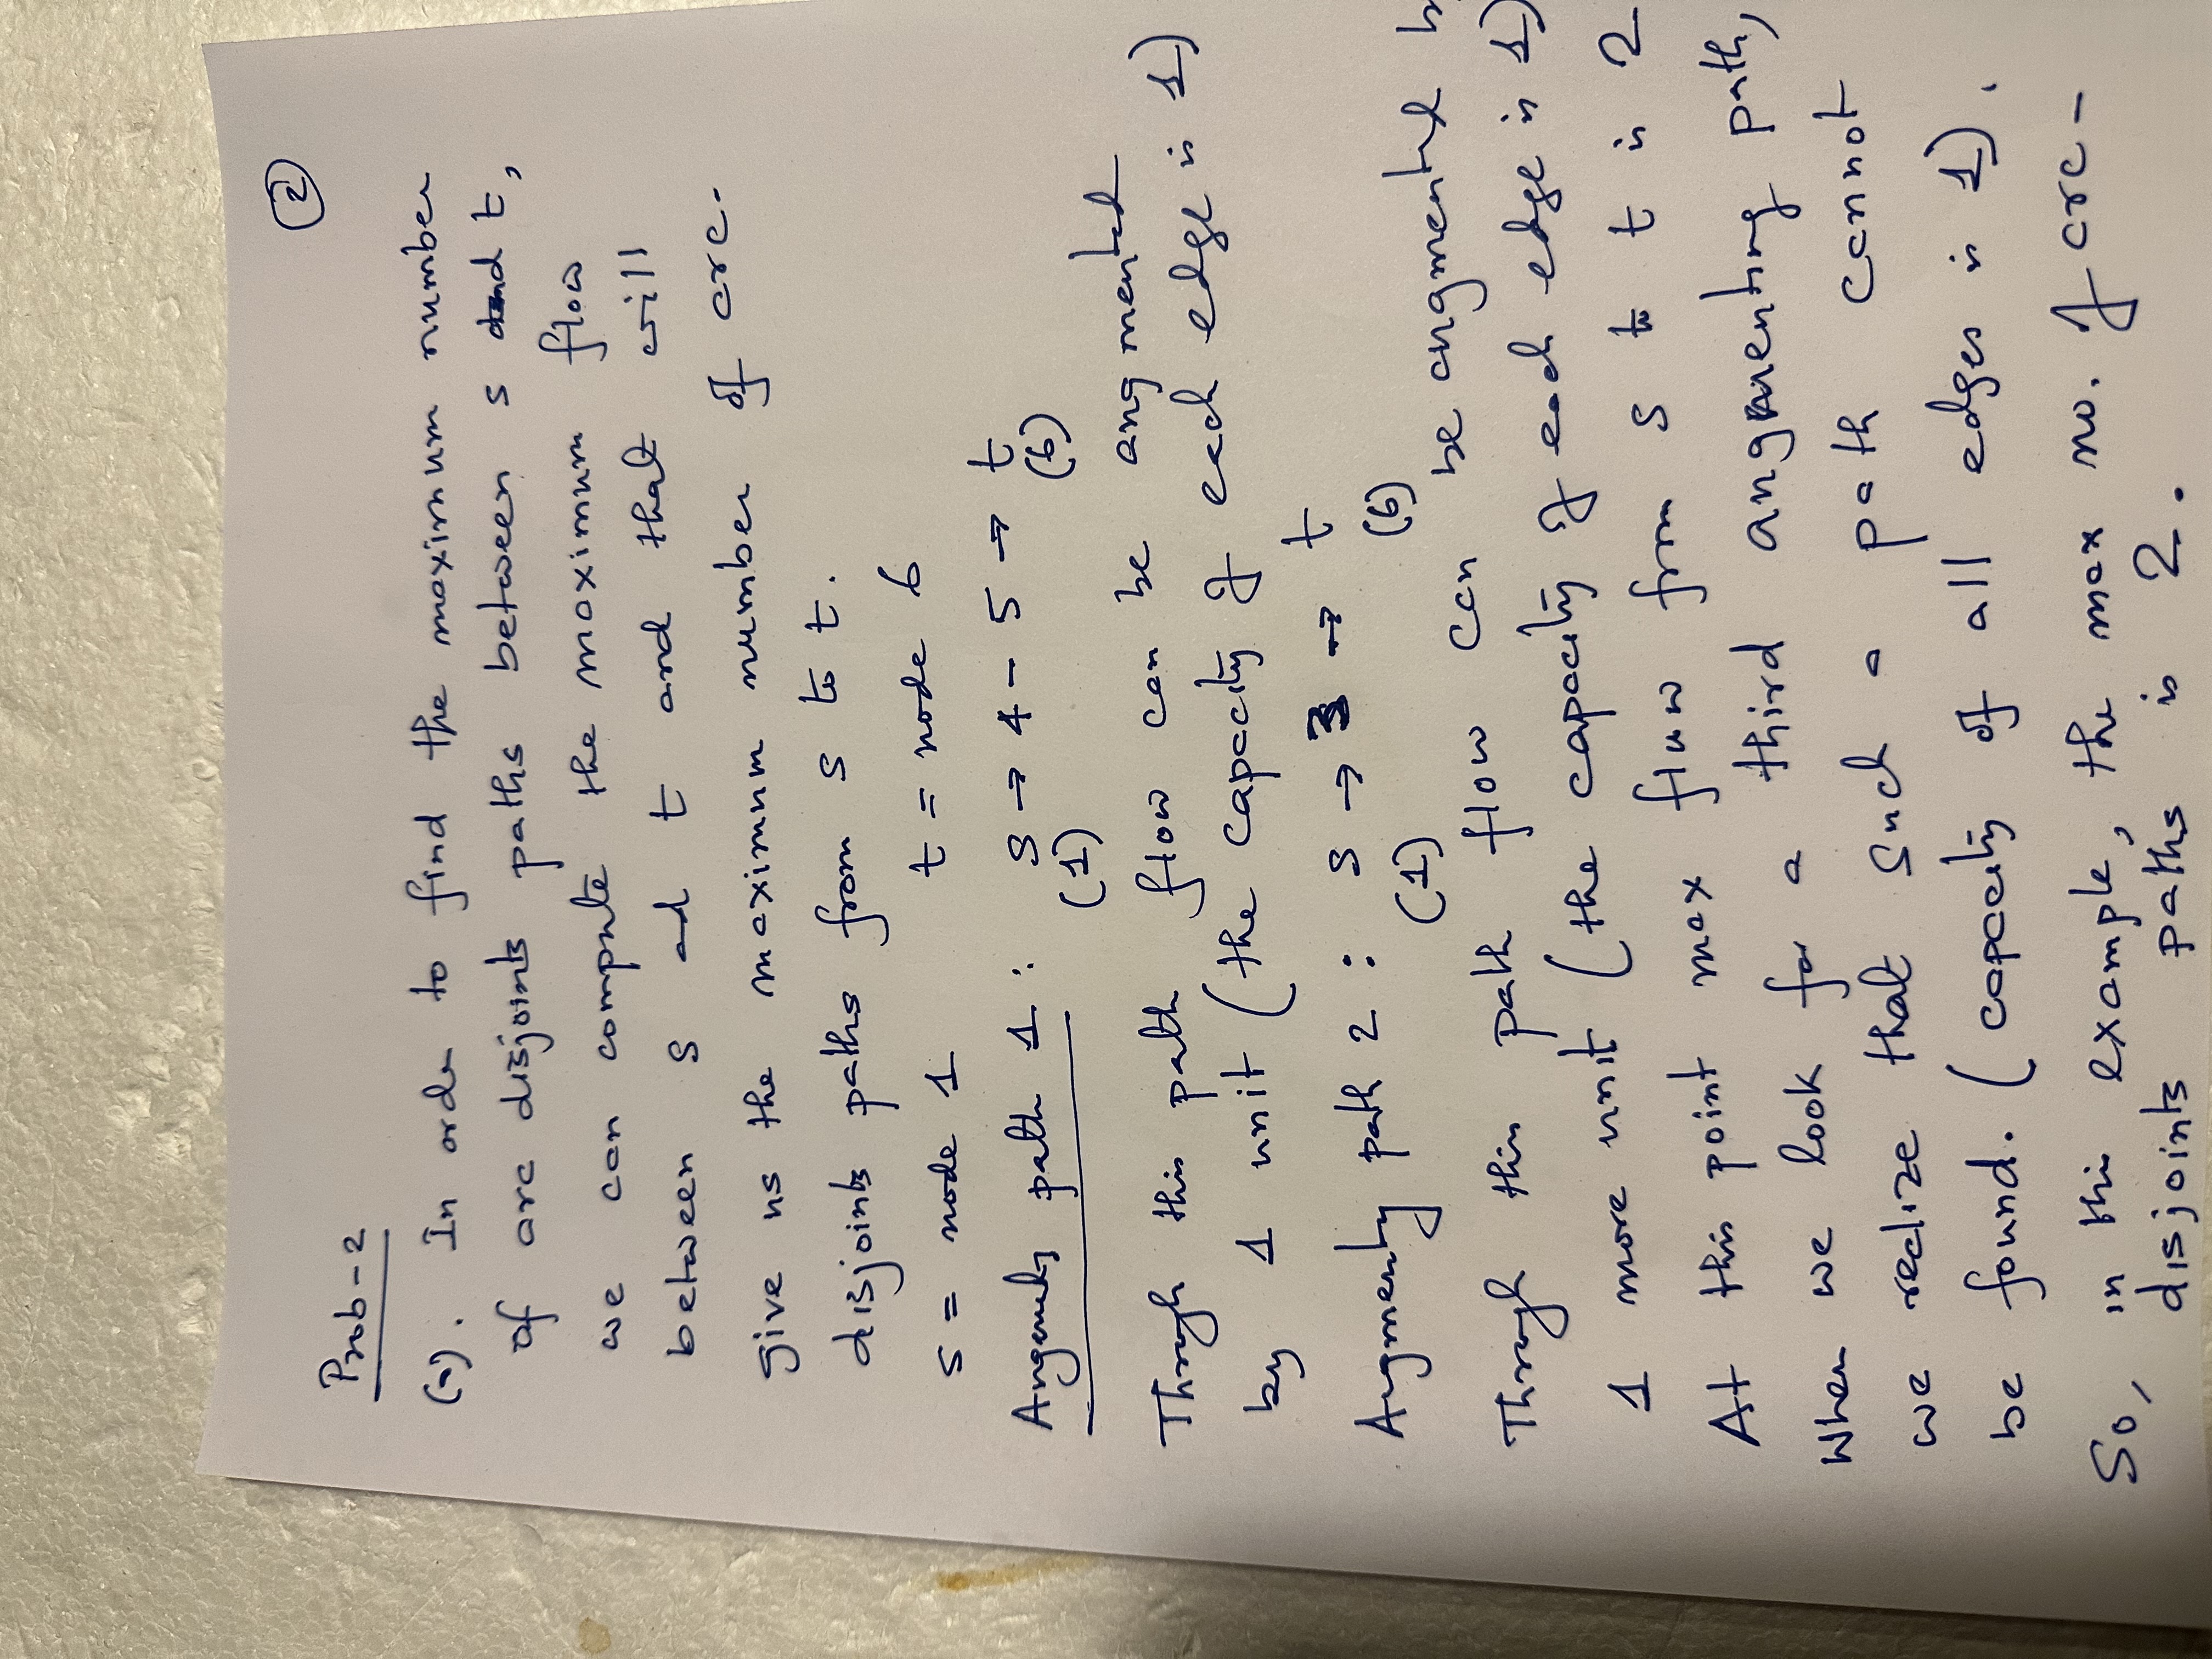 2
Prob-2
(a). In order to find the maximum number
of arc disjoints paths between s and t,
we can compute the maximum flow
between s and t and that will
give us the maximum number of arc-
disjoints paths from s to t.
s = node 1 t = node 6
Augmenting path 1 : s → 4 - 5 → t
(1) (6)
Through this path flow can be augmented
by 1 unit (the capacity of each edge is 1)
Augmenting path 2 : s → 3 → t
(1) (6)
Through this path flow can be augmented
1 more unit (the capacity of each edge is 1)
At this point max flow from s to t is 2
When we look for a third augmenting path,
we realize that such a path cannot
be found. (capacity of all edges is 1).
So, in this example, the max no. of arc-
disjoints paths is 2.